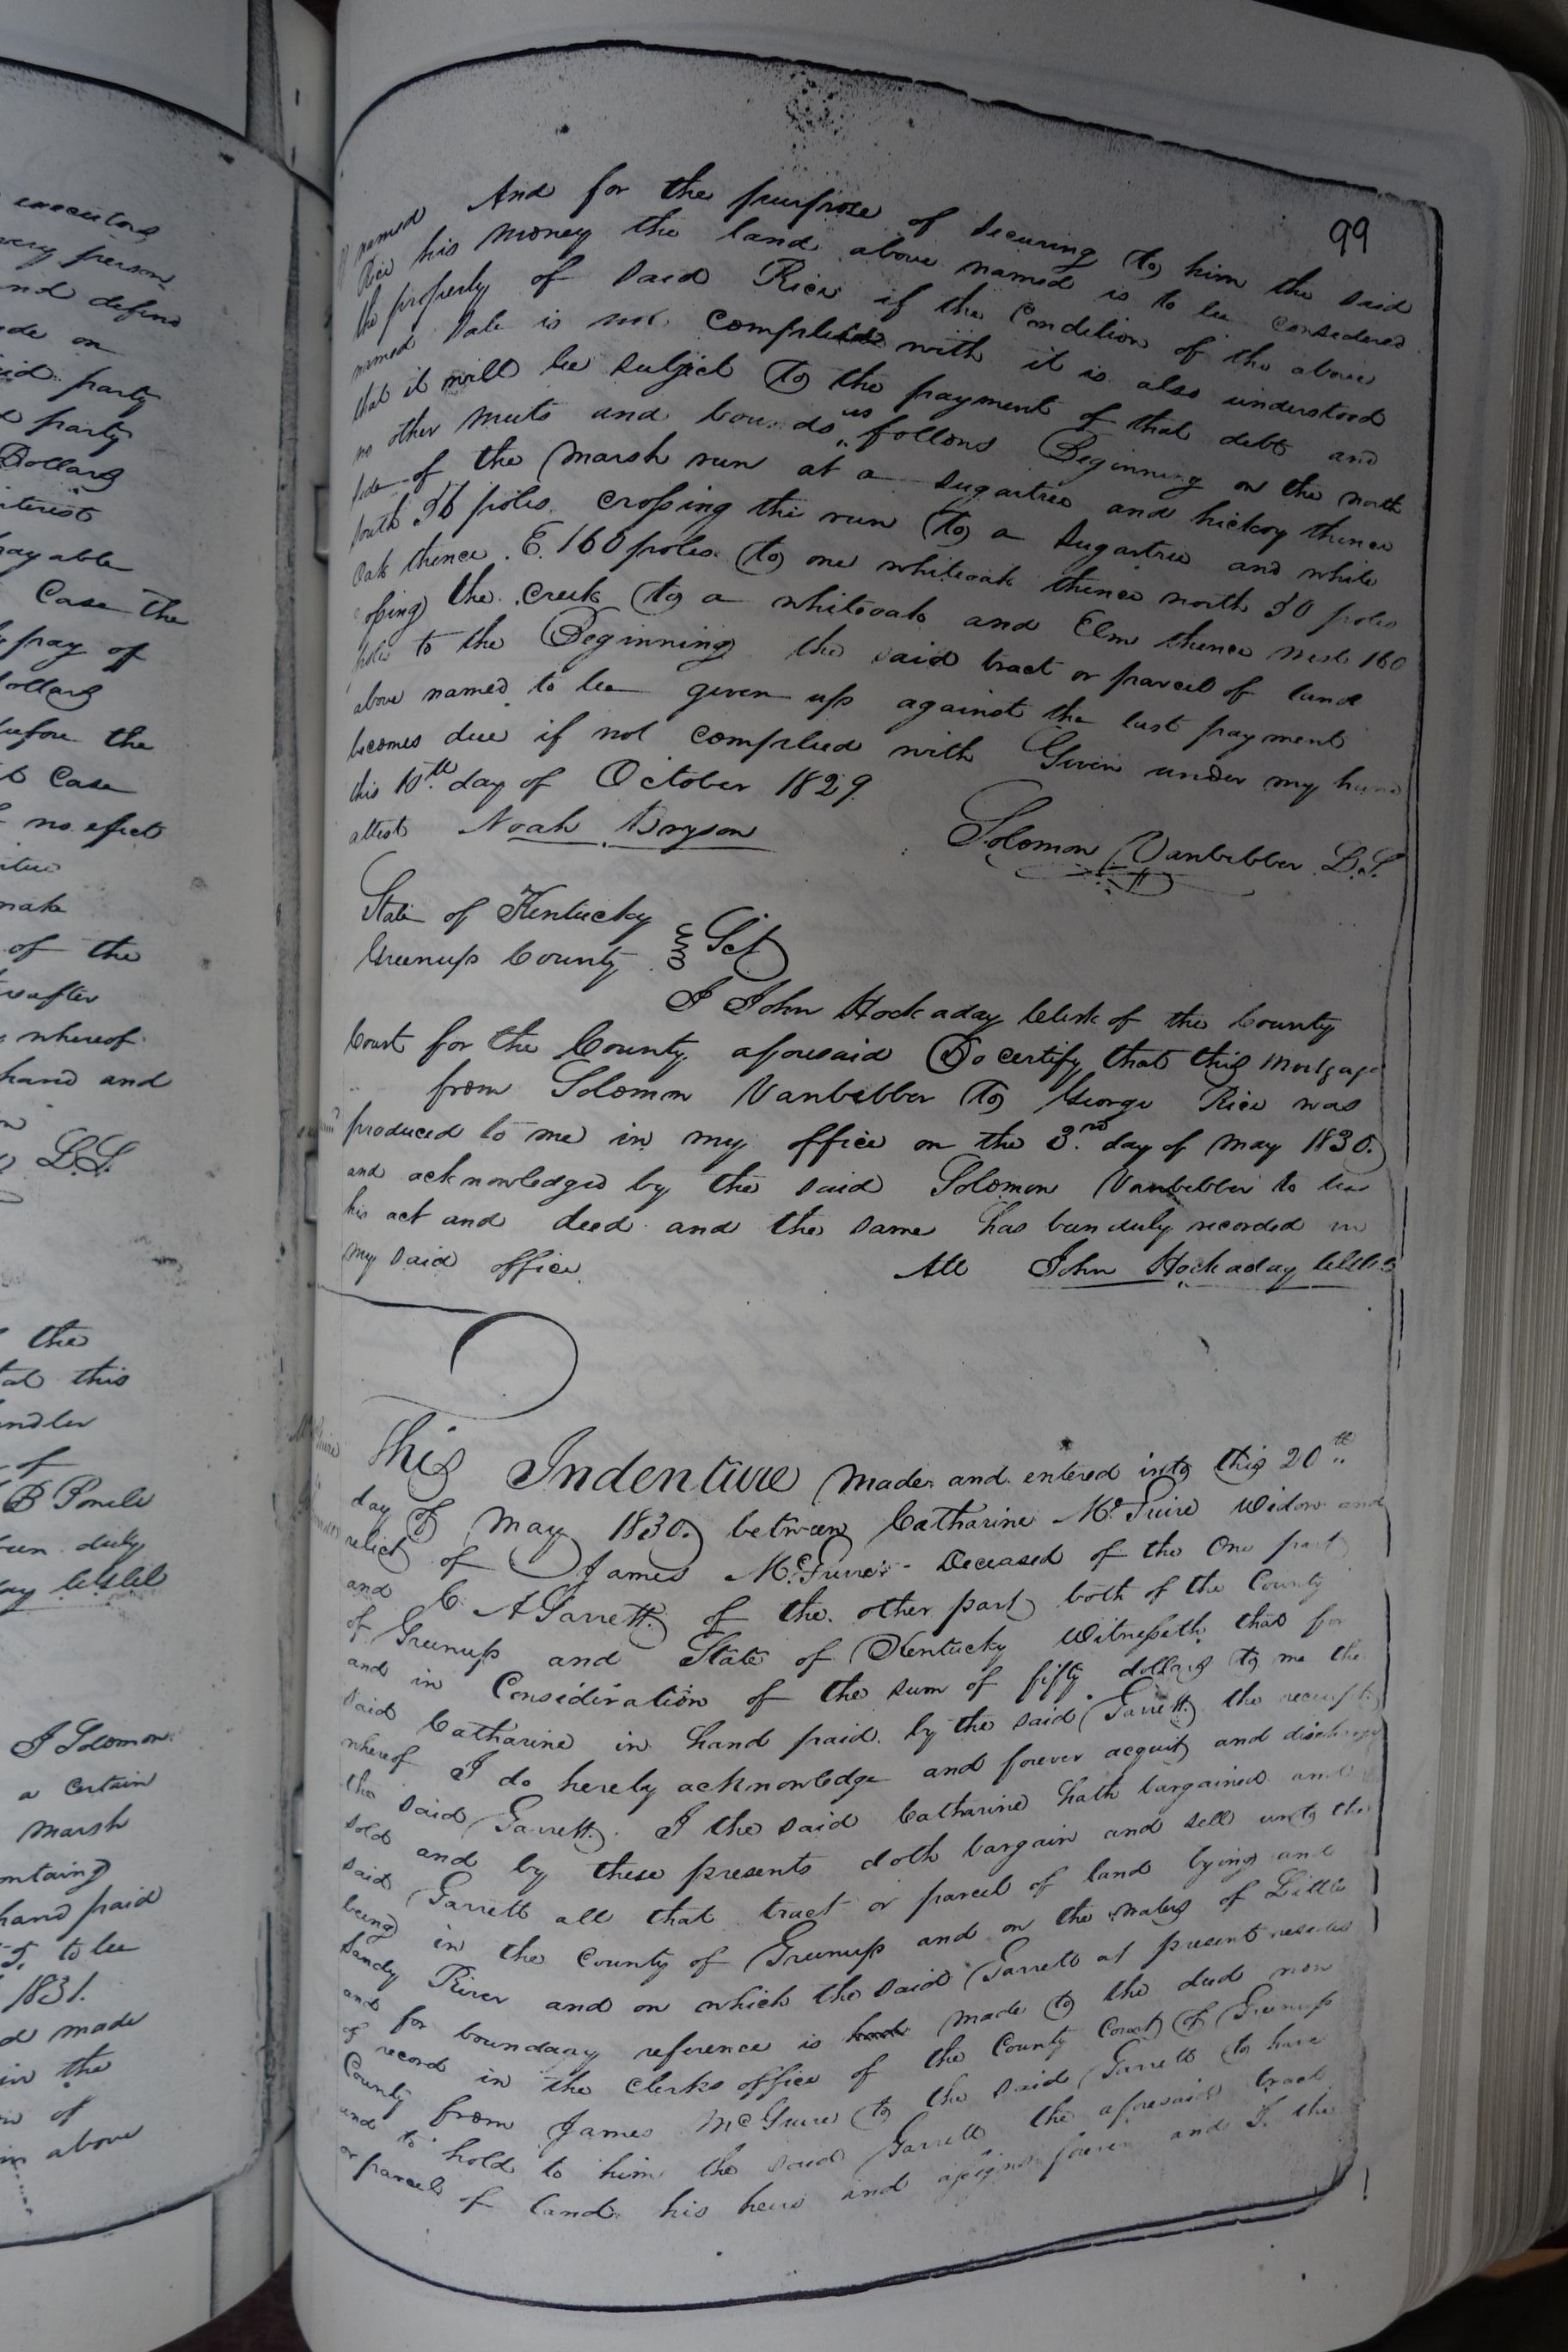 executors
very person
and defend
made on
said party
party
Dollars
interest
payable
Case the
pay of
Dollars
before the
Case
no efect
make
of the
hereafter
whereof
hand and
L.S.
the
that this
of
B Poncle
been duly
I Solomon
a certain
marsh
hand paid
to be
1831.
made
in the
of
above
99
named And for the purpose of securing to him the said
Rice his money the land above named is to be considered
the property of said Rice if the Condition of the above
named Sale is not complied with it is also understood
that it will be subject to the payment of that debt and
no other muts and bounds as follows Beginning on the north
side of the Marsh run at a sugartree and hickory thence
South 56 poles crossing the run to a Sugartree and white
Oak thence E. 160 poles to one whiteoak thence north 50 poles
the creek to a whiteoak and Elm thence west 160
poles to the Beginning the said tract or parcel of land
above named to be given up against the last payment
becomes due if not complied with Given under my hand
this 10th day of October 1829.
attest Noah Bryson Solomon Vanbibber L.S.
State of Kentucky
Greenup County Sct
I John Hockaday Clerk of the County
Court for the County aforesaid Do certify that this Mortgage
from Solomon Vanbibber to George Rice was
produced to me in my office on the 3rd day of May 1830.
and acknowledged by the said Solomon Vanbibber to be
his act and deed and the same has been duly recorded in
my said office Att John Hockaday
This Indenture Made and entered into this 20th
day of May 1830. between Catharine McGuire Widow and
relict of James McGuire Deceased of the One part
and C. A Garrett of the other part both of the County
of Greenup and State of Kentucky Witnesseth that for
and in Consideration of the sum of fifty dollars to me the
said Catharine in hand paid by the said Garrett the receipt
whereof I do hereby acknowledge and forever acquit and discharge
the said Garrett. I the said Catharine hath bargained and
sold and by these presents doth bargain and sell unto the
said Garrett all that tract or parcel of land lying and
being in the County of Greenup and on the waters of Little
Sandy River and on which the said Garrett at present resides
and for boundary reference is made to the deed now
of record in the clerks office of the County Court of Greenup
County from James McGuire to the said Garrett to have
and to hold to him the said Garrett the aforesaid tract
or parcel of land his heirs and assigns forever and I the